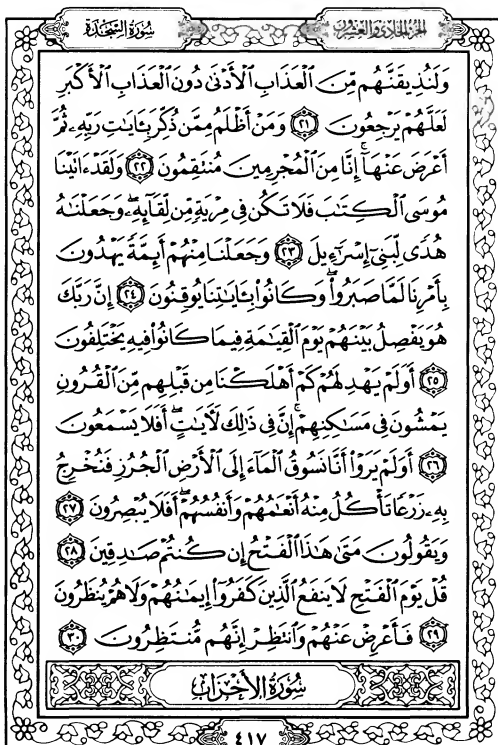 الجزء الحادي والعشرون
سُورَةُ السَّجْدَةِ
وَلَنُذِيقَنَّهُم مِّنَ ٱلْعَذَابِ ٱلْأَدْنَىٰ دُونَ ٱلْعَذَابِ ٱلْأَكْبَرِ
لَعَلَّهُمْ يَرْجِعُونَ ٢١ وَمَنْ أَظْلَمُ مِمَّن ذُكِّرَ بِـَٔايَٰتِ رَبِّهِۦ ثُمَّ
أَعْرَضَ عَنْهَآ ۚ إِنَّا مِنَ ٱلْمُجْرِمِينَ مُنتَقِمُونَ ٢٢ وَلَقَدْ ءَاتَيْنَا
مُوسَى ٱلْكِتَٰبَ فَلَا تَكُن فِى مِرْيَةٍ مِّن لِّقَآئِهِۦ ۖ وَجَعَلْنَٰهُ
هُدًى لِّبَنِىٓ إِسْرَٰٓءِيلَ ٢٣ وَجَعَلْنَا مِنْهُمْ أَئِمَّةً يَهْدُونَ
بِأَمْرِنَا لَمَّا صَبَرُوا۟ ۖ وَكَانُوا۟ بِـَٔايَٰتِنَا يُوقِنُونَ ٢٤ إِنَّ رَبَّكَ
هُوَ يَفْصِلُ بَيْنَهُمْ يَوْمَ ٱلْقِيَٰمَةِ فِيمَا كَانُوا۟ فِيهِ يَخْتَلِفُونَ
٢٥ أَوَلَمْ يَهْدِ لَهُمْ كَمْ أَهْلَكْنَا مِن قَبْلِهِم مِّنَ ٱلْقُرُونِ
يَمْشُونَ فِى مَسَٰكِنِهِمْ ۚ إِنَّ فِى ذَٰلِكَ لَـَٔايَٰتٍ ۖ أَفَلَا يَسْمَعُونَ
٢٦ أَوَلَمْ يَرَوْا۟ أَنَّا نَسُوقُ ٱلْمَآءَ إِلَى ٱلْأَرْضِ ٱلْجُرُزِ فَنُخْرِجُ
بِهِۦ زَرْعًا تَأْكُلُ مِنْهُ أَنْعَٰمُهُمْ وَأَنفُسُهُمْ ۖ أَفَلَا يُبْصِرُونَ ٢٧
وَيَقُولُونَ مَتَىٰ هَٰذَا ٱلْفَتْحُ إِن كُنتُمْ صَٰدِقِينَ ٢٨
قُلْ يَوْمَ ٱلْفَتْحِ لَا يَنفَعُ ٱلَّذِينَ كَفَرُوٓا۟ إِيمَٰنُهُمْ وَلَا هُمْ يُنظَرُونَ
٢٩ فَأَعْرِضْ عَنْهُمْ وَٱنتَظِرْ إِنَّهُم مُّنتَظِرُونَ ٣٠
سُورَةُ الأَحْزَابِ
٤١٧